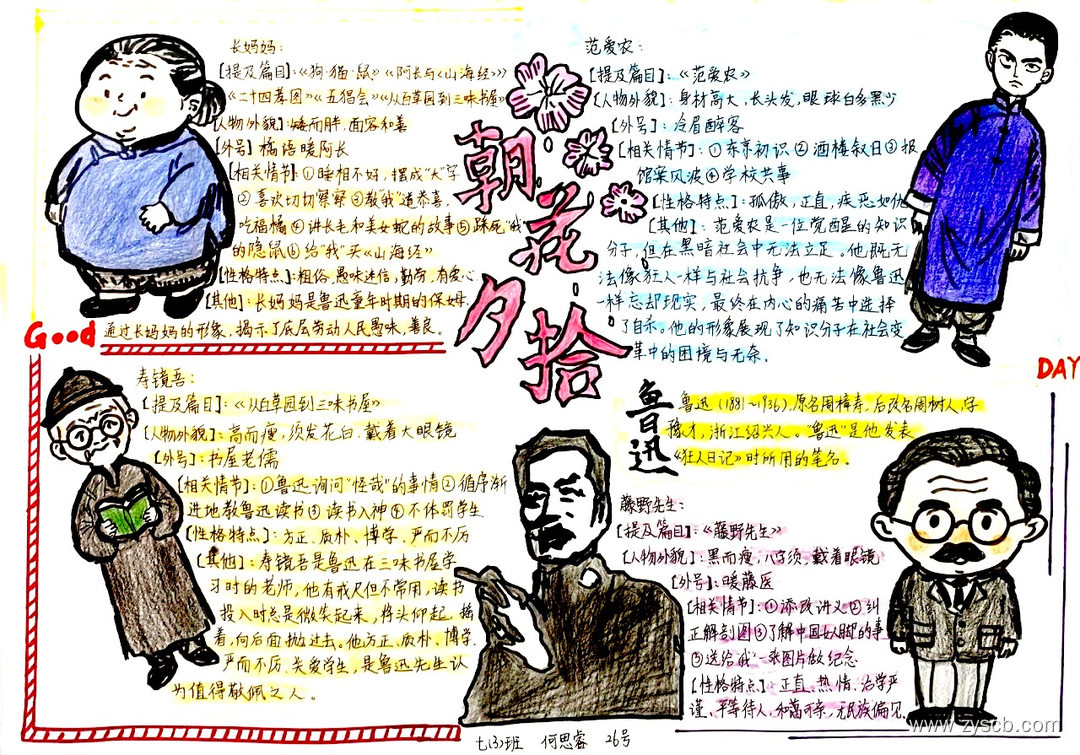 长妈妈:
【提及篇目】:《狗·猫·鼠》《阿长与《山海经》》
《二十四孝图》《五猖会》《从百草园到三味书屋》
【人物外貌】矮而胖,面容和善
【外号】橘语暖阿长
【相关情节】①睡相不好,摆成"大"字
②喜欢切切察察③教我"道恭喜,
吃福橘④讲长毛和美女蛇的故事⑤踩死"我"
的隐鼠⑥给"我"买《山海经》
【性格特点】粗俗,愚昧迷信,勤劳,有爱心
【其他】:长妈妈是鲁迅童年时期的保姆.
通过长妈妈的形象,揭示了底层劳动人民愚昧,善良。
Good
朝花夕拾
范爱农:
【提及篇目】:《范爱农》
【人物外貌】:身材高大,长头发,眼球白多黑少
【外号】:冷眉醉客
【相关情节】:①东京初识②酒楼叙日③报
馆案风波④学校共事
【性格特点】:孤傲,正直,疾恶如仇
【其他】:范爱农是一位觉醒的知识
分子,但在黑暗社会中无法立足。他既无
法像狂人一样与社会抗争,也无法像鲁迅
一样忘却现实,最终在内心的痛苦中选择
了自杀。他的形象展现了知识分子在社会变
革中的困境与无奈.
DAY
寿镜吾:
【提及篇目】:《从百草园到三味书屋》
【人物外貌】:高而瘦,须发花白,戴着大眼镜
【外号】:书屋老儒
【相关情节】:①鲁迅询问"怪哉"的事情②循序渐
进地教鲁迅读书③读书入神④不体罚学生
【性格特点】:方正、质朴、博学、严而不厉
【其他】:寿镜吾是鲁迅在三味书屋学
习时的老师,他有戒尺但不常用,读书
投入时总是微笑起来,将头仰起,摇
着,向后面拗过去。他方正、质朴、博学,
严而不厉、关爱学生,是鲁迅先生认
为值得敬佩之人。
鲁迅
鲁迅(1881~1936),原名周樟寿,后改名周树人,字
豫才,浙江绍兴人。"鲁迅"是他发表
《狂人日记》时所用的笔名。
藤野先生:
【提及篇目】:《藤野先生》
【人物外貌】:黑而瘦,八字须,戴着眼镜
【外号】:暖藤医
【相关情节】:①添改讲义②纠
正解剖图③了解中国女人脚的事
③送给"我"一张图片做纪念
【性格特点】:正直、热情、治学严
谨、平等待人,和蔼可亲,无民族偏见
七(3)班 何思睿 26号
www.zyscb.com